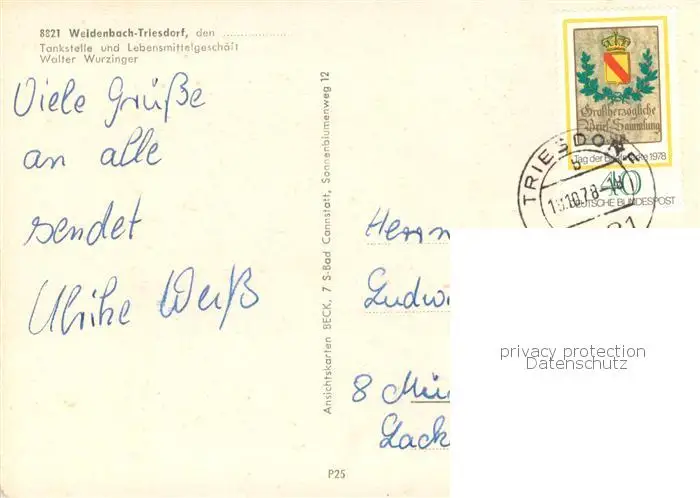 8821 Weidenbach-Triesdorf, den ....................
Tankstelle und Lebensmittelgeschäft
Walter Wurzinger
Viele Grüße
an alle
sendet
Ulrike Weiß
Ansichtskarten BECK, 7 S-Bad Cannstatt, Sonnenblumenweg 12
P25
Großherzogliche
Brief-Sammlung
Tag der Briefmarke 1978
40
DEUTSCHE BUNDESPOST
TRIESDORF
b
10.78-18
Herrn
Ludwi
8 Mün
Lack
privacy protection
Datenschutz